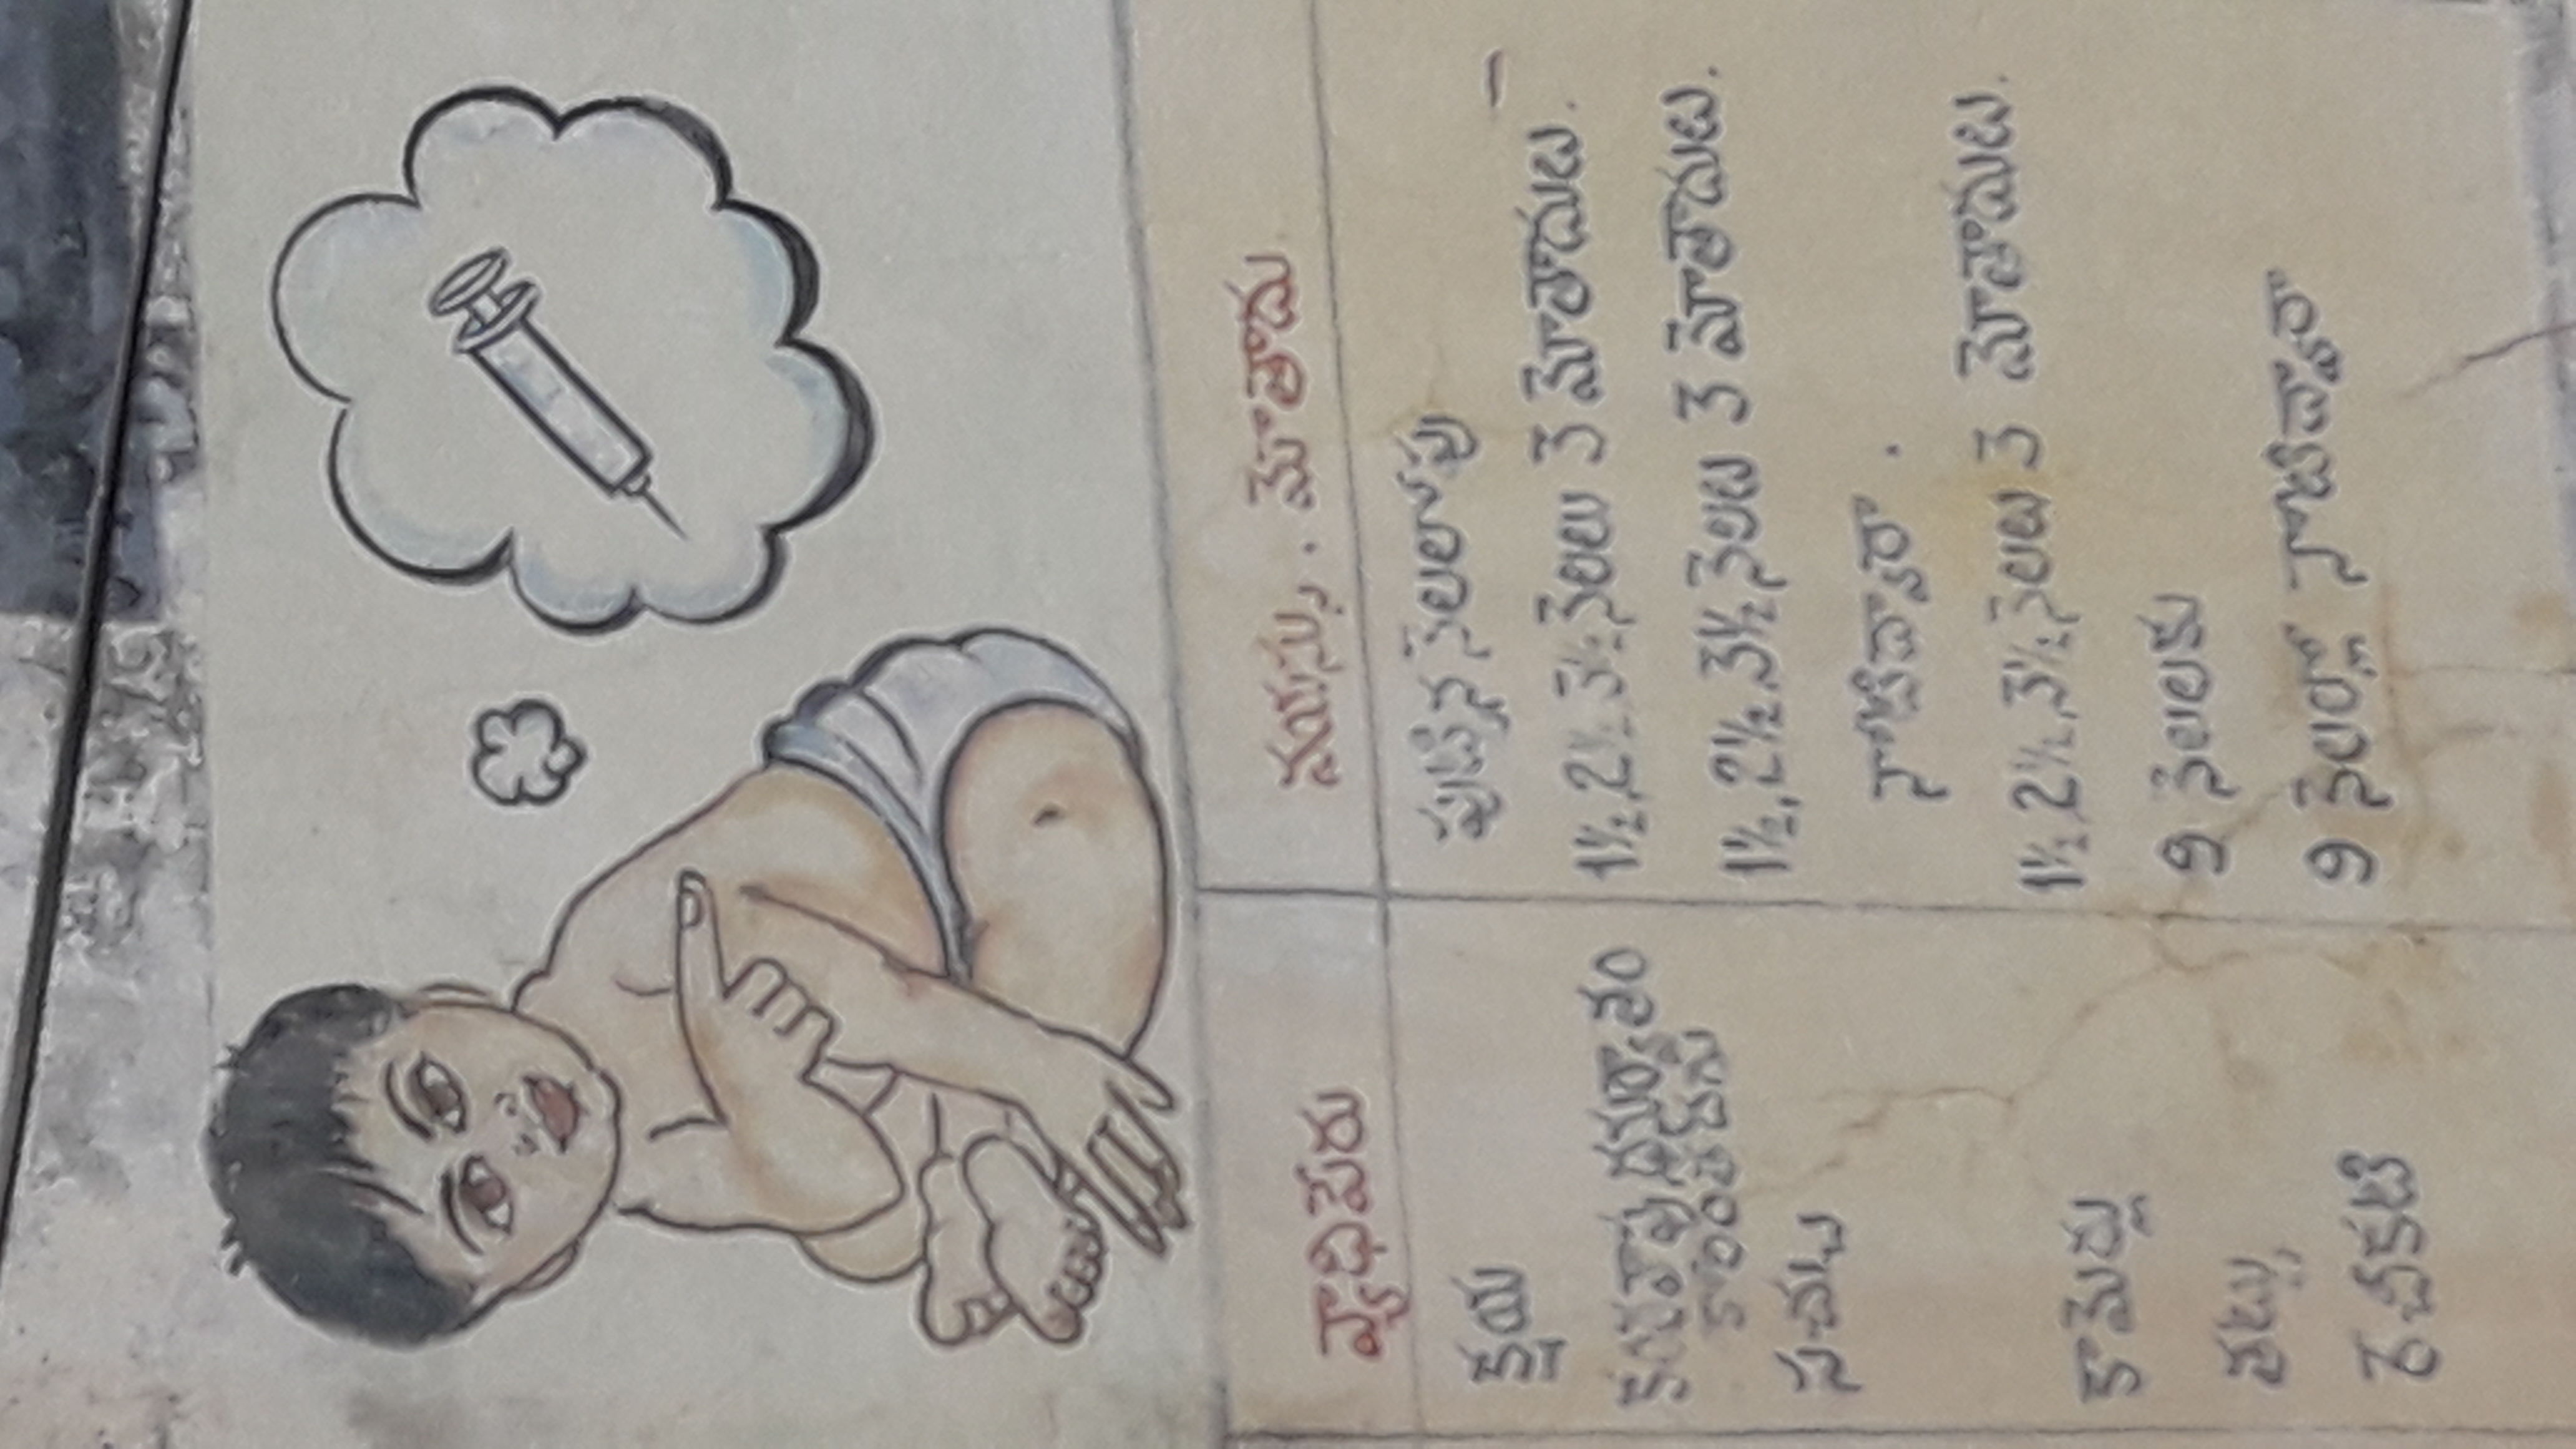 వ్యాధిపేరు వయస్సు. మోతాదు
క్షయ పుట్టిన నెలలోపు –
కంఠవాపు దనుర్వాతం 1½, 2½, 3½ నెలలు 3 మోతాదులు.
కోరింతదగ్గు
పోలియో 1½, 2½, 3½ నెలలు 3 మోతాదులు.
నోటిద్వారా.
కామెర్లు 1½, 2½, 3½ నెలలు 3 మోతాదులు.
తట్టు 9 నెలలకు
రేచీకటి 9 నెలల్లో నోటిద్వారా